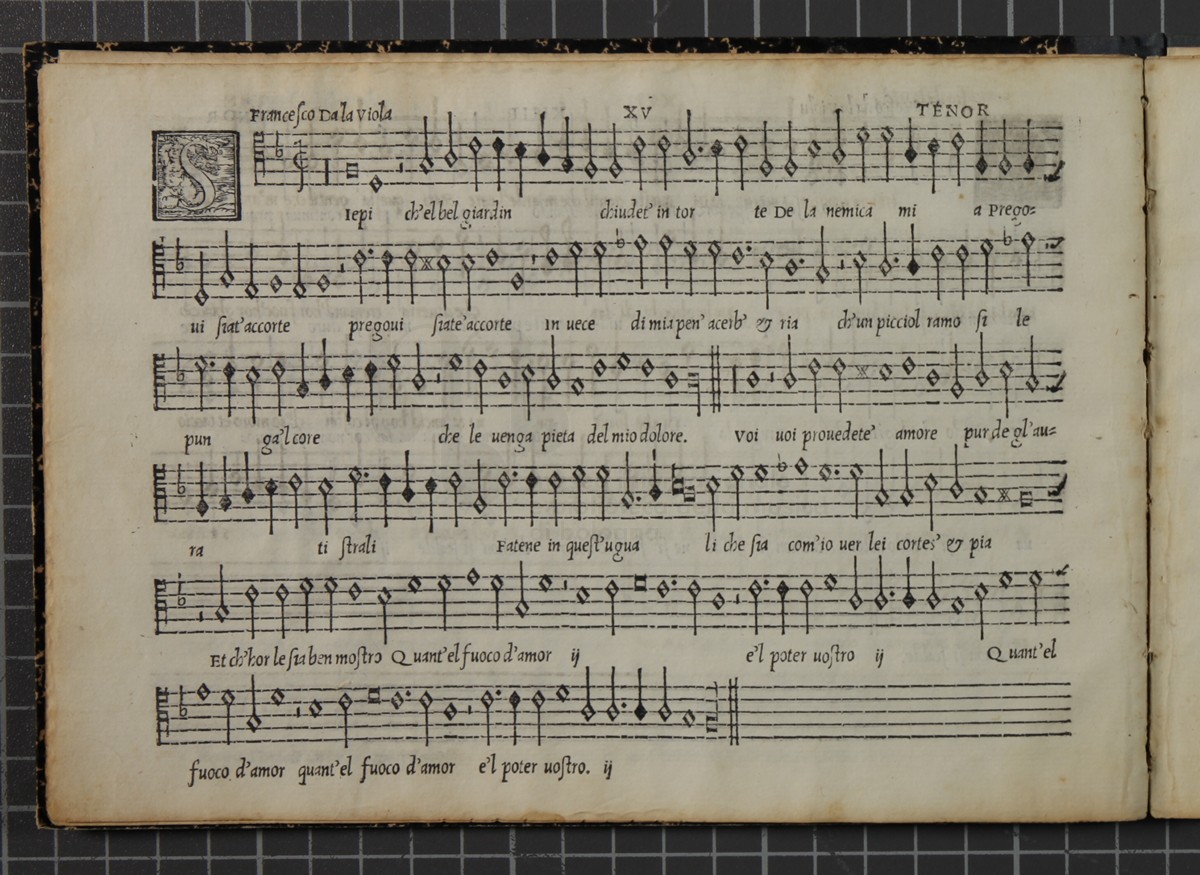 Francesco Dala Viola XV TENOR
S Iepi ch'el bel giardin chiudet' in tor te De la nemica mi a Prego=
ui siat' accorte pregoui siate' accorte In uece di mia pen' acerb' & ria ch'un picciol ramo si le
pun ga'l core che le uenga pieta del mio dolore. Voi uoi prouedete' amore pur de gl'au=
ra ti strali Fatene in quest' ugua li che sia com'io uer lei cortes' & pia
Et ch'hor le sia ben mostro Quant'el fuoco d'amor ij e'l poter uostro ij Quant'el
fuoco d'amor quant'el fuoco d'amor e'l poter uostro. ij